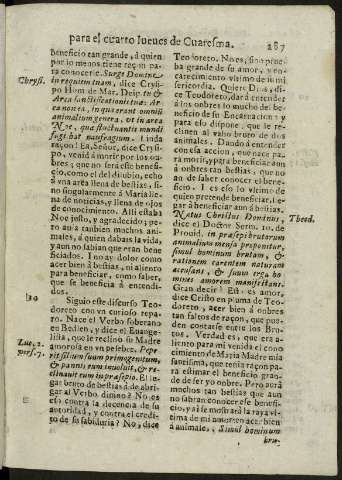 para el cuarto Iueues de Cuaresma. 287
beneficio tan grande, á quien
por lo menos tiene raçon pa-
ra conocerle. Surge Domine
Chrysi.
in requiem tuam, dice Crysi-
po Hom de Mar. Deip. tu &
Arca sanctificationis tuæ. Ar-
ca non ex, in qua erant omnis
animalium genera, vt in arca
Noe, quæ fluctuantis mundi
fugit naufragium. Linda
raçon! Ea, Señor, dice Cryſi-
po, venid á morir por los on-
bres; que no será este benefi-
cio, como el del dilubio, echo
á vna arca llena de bestias, si-
no singularmente à Maria lle-
na de noticias, y llena de ojos
de conocimiento. Alli estaba
Noe justo, y agradecido; pe-
ro auia tanbien muchos ani-
males, á quien dabais la vida,
y aun no sabian que eran bene
ficiados. I no ay dolor como
acer bien á bestias, ni aliento
para beneficiar, como saber,
que se beneficia à entendi-
dos.
30
Siguio este discurso Teo-
doreto con vn curioso repa-
ro. Nace el Verbo soberano
en Bedlen, y dice el Euange-
Luc. 2.
lista, que le reclinò su Madre
vers. 7.
amorosa en vn pesebre. Pepe-
rit filium suum primogenitum,
& pannis eum inuoluit, & re-
clinauit eum in præsepio. El le-
gar bruto de bestias á de abri-
gar al Verbo diuino? No es
eso contra la decencia de su
autoridad, y contra el credi-
to de su sabiduria? No, dice
Teodoreto. No es, sino pone-
grande de su amor, y en-
carecimiento vltimo de su mi
sericordia. Quiere Dios, di-
ce Teodoreto, dar á entender
á los onbres lo mucho del be-
neficio de su Encarnacion; y
para eso dispone, que le re-
clinen al vabo bruto de dos
animales. Dando á entender
con esa accion, que nace pa-
ra morir, y para beneficiar aun
á onbres tan bestias, que no
an de saber conocer el bene-
ficio. I es eso lo vltimo de
quien pretende beneficiar, lle-
gar á beneficiar aun á bestias.
Natus Christus Dominus,
Theod.
dice el Doctor Serm. 10. de
Prouid. in præsepi brutorum
animalium mensa proponitur,
simul hominum brutam, &
rationem carentem naturam
accusans, & suum erga ho-
mines amorem manifestans.
Gran decir! Est es amor,
dice Cristo en pluma de Teo-
doreto, acer bien á onbres
tan faltos de raçon, que pue-
den contarse entre los Bru-
tos. Verdad es, que era ali-
uiento para mi venida el cono
cimiento de Maria Madre mia
santisima, que tenia raçon pa-
ra estimar el beneficio gran-
de de ser yo onbre. Pero aura
muchos tan bestias que aun
no sabran conocer ese benefi-
cio, y ai se mostrarà la raya vl-
tima de mi amor en acer bien
á animales. Simul hominum
bru-